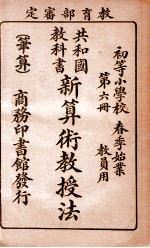 教育部審定
初等小學校 春季始業
第六冊 教員用
共和國教科書
新算術教授法
(筆算)
商務印書館發行